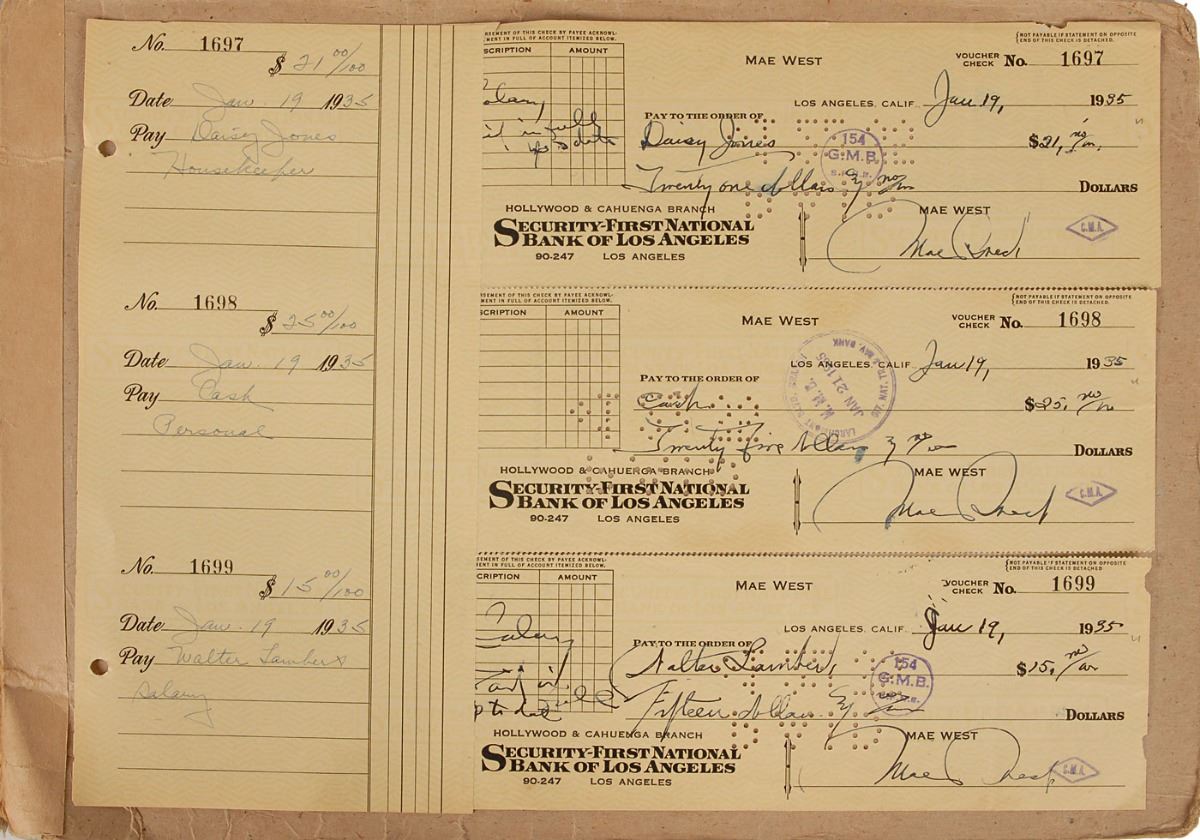 No. 1697
$ 21 00/100
Date Jan. 19 1935
Pay Daisy Jones
Housekeeper
No. 1698
$ 25 00/100
Date Jan. 19 1935
Pay Cash
Personal
No. 1699
$ 15 00/100
Date Jan. 19 1935
Pay Walter Lambert
salary
RSEMENT OF THIS CHECK BY PAYEE ACKNOWL-
MENT IN FULL OF ACCOUNT ITEMIZED BELOW.
SCRIPTION AMOUNT
alary
in full
to date
MAE WEST
NOT PAYABLE IF STATEMENT ON OPPOSITE
END OF THIS CHECK IS DETACHED.
VOUCHER CHECK No. 1697
LOS ANGELES, CALIF. Jan 19, 1935
PAY TO THE ORDER OF
Daisy Jones $21, no/100
154
G.M.B.
Twenty one dollars & no/100 DOLLARS
HOLLYWOOD & CAHUENGA BRANCH
SECURITY-FIRST NATIONAL
BANK OF LOS ANGELES
90-247 LOS ANGELES
MAE WEST
Mae West
C.M.A.
RSEMENT OF THIS CHECK BY PAYEE ACKNOWL-
MENT IN FULL OF ACCOUNT ITEMIZED BELOW.
SCRIPTION AMOUNT
MAE WEST
NOT PAYABLE IF STATEMENT ON OPPOSITE
END OF THIS CHECK IS DETACHED.
VOUCHER CHECK No. 1698
LOS ANGELES, CALIF. Jan 19, 1935
PAY TO THE ORDER OF
Cash $25, no/100
JAN 21 1935
Twenty five dollars & no/100 DOLLARS
HOLLYWOOD & CAHUENGA BRANCH
SECURITY-FIRST NATIONAL
BANK OF LOS ANGELES
90-247 LOS ANGELES
MAE WEST
Mae West
C.M.A.
RSEMENT OF THIS CHECK BY PAYEE ACKNOWL-
MENT IN FULL OF ACCOUNT ITEMIZED BELOW.
CRIPTION AMOUNT
Salary
Paid in
full
to date
MAE WEST
NOT PAYABLE IF STATEMENT ON OPPOSITE
END OF THIS CHECK IS DETACHED
VOUCHER CHECK No. 1699
LOS ANGELES, CALIF. Jan 19, 1935
PAY TO THE ORDER OF
Walter Lambert $15, no/100
154
G.M.B.
Fifteen dollars & no/100 DOLLARS
HOLLYWOOD & CAHUENGA BRANCH
SECURITY-FIRST NATIONAL
BANK OF LOS ANGELES
90-247 LOS ANGELES
MAE WEST
Mae West
C.M.A.